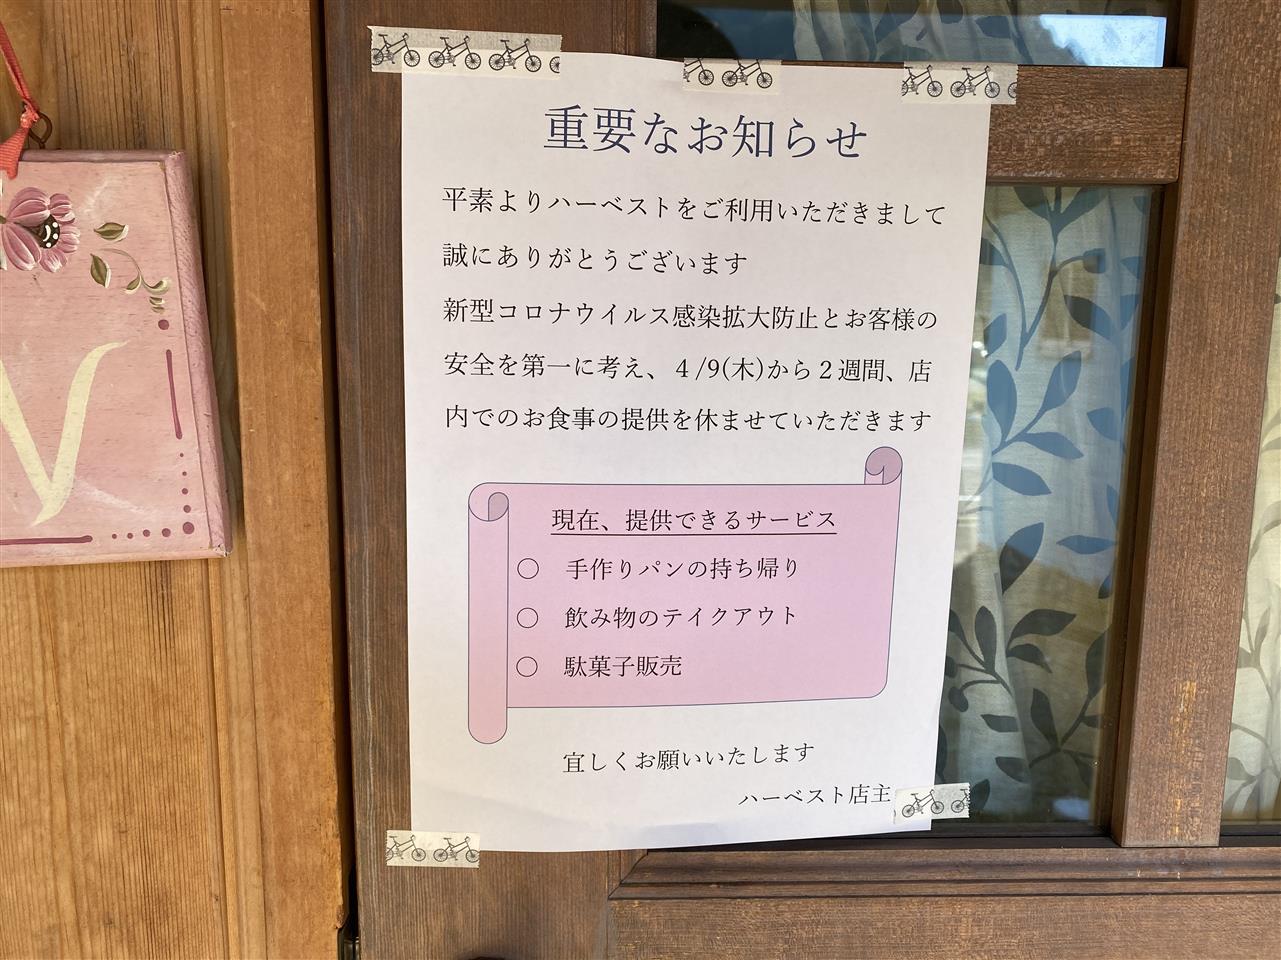 重要なお知らせ
平素よりハーベストをご利用いただきまして
誠にありがとうございます
新型コロナウイルス感染拡大防止とお客様の
安全を第一に考え、４/9(木)から２週間、店
内でのお食事の提供を休ませていただきます
現在、提供できるサービス
○　手作りパンの持ち帰り
○　飲み物のテイクアウト
○　駄菓子販売
宜しくお願いいたします
ハーベスト店主